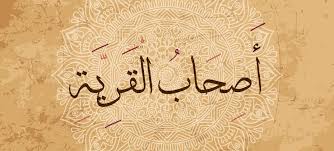 أَصحَابُ القَريَّة